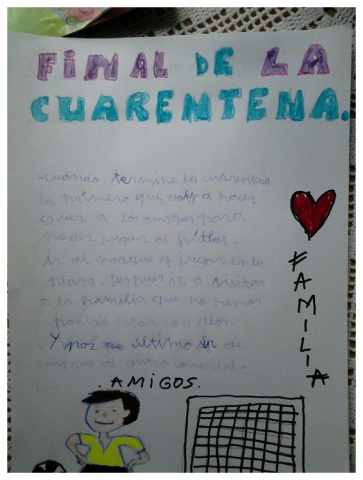 FINAL DE LA
CUARENTENA.
-cuando termine la cuarentena
lo primero que voy a hacer
es ver a los amigos para
poder jugar al fútbol,
ir al parque y jugar en la
plaza. Despues ir a visitar
a la familia que no hemos
podido estar con ellos.
Y por último ir de
compras al centro comercial.
FAMILIA
AMIGOS.